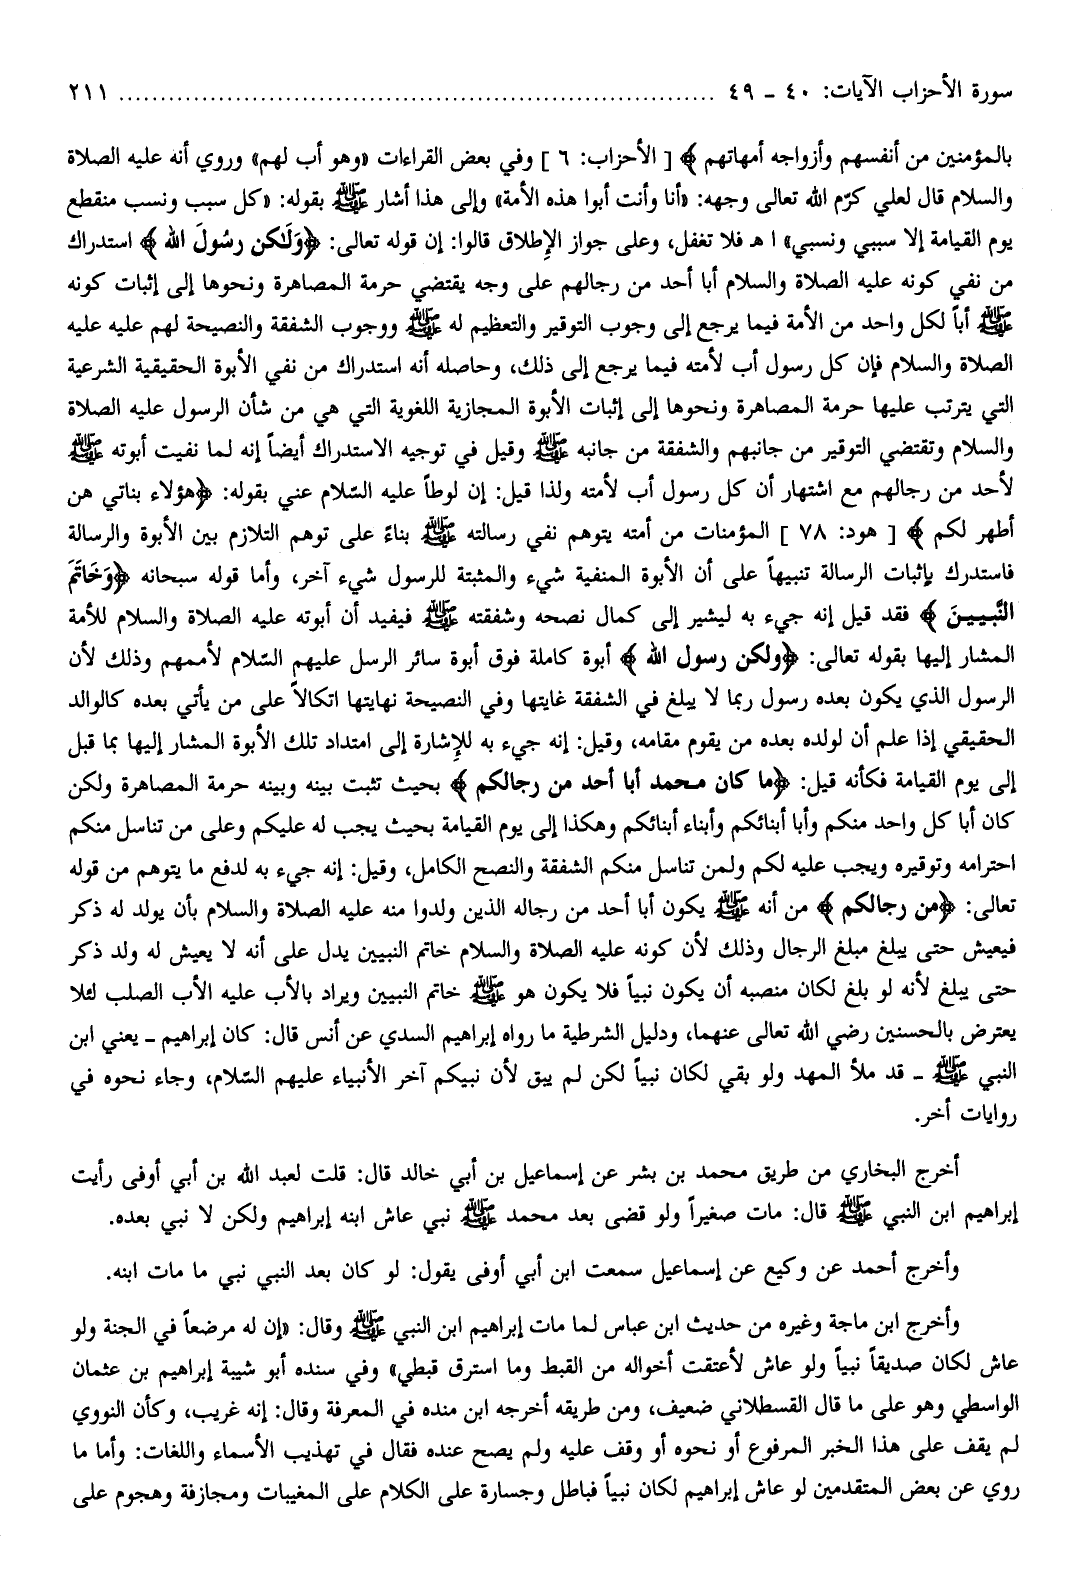 سورة الأحزاب الآيات: ٤٠ - ٤٩ ........................................................................ ٢١١
بالمؤمنين من أنفسهم وأزواجه أمهاتهم ﴾ [ الأحزاب: ٦ ] وفي بعض القراءات «وهو أب لهم» وروي أنه عليه الصلاة
والسلام قال لعلي كرّم الله تعالى وجهه: «أنا وأنت أبوا هذه الأمة» وإلى هذا أشار ﷺ بقوله: «كل سبب ونسب منقطع
يوم القيامة إلا سببي ونسبي» ا هـ فلا تغفل، وعلى جواز الإطلاق قالوا: إن قوله تعالى: ﴿وَلَٰكن رسُولَ الله ﴾ استدراك
من نفي كونه عليه الصلاة والسلام أبا أحد من رجالهم على وجه يقتضي حرمة المصاهرة ونحوها إلى إثبات كونه
ﷺ أباً لكل واحد من الأمة فيما يرجع إلى وجوب التوقير والتعظيم له ﷺ ووجوب الشفقة والنصيحة لهم عليه عليه
الصلاة والسلام فإن كل رسول أب لأمته فيما يرجع إلى ذلك، وحاصله أنه استدراك من نفي الأبوة الحقيقية الشرعية
التي يترتب عليها حرمة المصاهرة ونحوها إلى إثبات الأبوة المجازية اللغوية التي هي من شأن الرسول عليه الصلاة
والسلام وتقتضي التوقير من جانبهم والشفقة من جانبه ﷺ وقيل في توجيه الاستدراك أيضاً إنه لما نفيت أبوته ﷺ
لأحد من رجالهم مع اشتهار أن كل رسول أب لأمته ولذا قيل: إن لوطاً عليه السّلام عني بقوله: ﴿هؤلاء بناتي هن
أطهر لكم ﴾ [ هود: ٧٨ ] المؤمنات من أمته يتوهم نفي رسالته ﷺ بناءً على توهم التلازم بين الأبوة والرسالة
فاستدرك بإثبات الرسالة تنبيهاً على أن الأبوة المنفية شيء والمثبتة للرسول شيء آخر، وأما قوله سبحانه ﴿وَخَاتَمَ
النَّبيينَ ﴾ فقد قيل إنه جيء به ليشير إلى كمال نصحه وشفقته ﷺ فيفيد أن أبوته عليه الصلاة والسلام للأمة
المشار إليها بقوله تعالى: ﴿ولكن رسول الله ﴾ أبوة كاملة فوق أبوة سائر الرسل عليهم السّلام لأممهم وذلك لأن
الرسول الذي يكون بعده رسول ربما لا يبلغ في الشفقة غايتها وفي النصيحة نهايتها اتكالاً على من يأتي بعده كالوالد
الحقيقي إذا علم أن لولده بعده من يقوم مقامه، وقيل: إنه جيء به للإشارة إلى امتداد تلك الأبوة المشار إليها بما قبل
إلى يوم القيامة فكأنه قيل: ﴿ما كان محمد أبا أحد من رجالكم ﴾ بحيث تثبت بينه وبينه حرمة المصاهرة ولكن
كان أبا كل واحد منكم وأبا أبنائكم وأبناء أبنائكم وهكذا إلى يوم القيامة بحيث يجب له عليكم وعلى من تناسل منكم
احترامه وتوقيره ويجب عليه لكم ولمن تناسل منكم الشفقة والنصح الكامل، وقيل: إنه جيء به لدفع ما يتوهم من قوله
تعالى: ﴿من رجالكم ﴾ من أنه ﷺ يكون أبا أحد من رجاله الذين ولدوا منه عليه الصلاة والسلام بأن يولد له ذكر
فيعيش حتى يبلغ مبلغ الرجال وذلك لأن كونه عليه الصلاة والسلام خاتم النبيين يدل على أنه لا يعيش له ولد ذكر
حتى يبلغ لأنه لو بلغ لكان منصبه أن يكون نبياً فلا يكون هو ﷺ خاتم النبيين ويراد بالأب عليه الأب الصلب لئلا
يعترض بالحسنين رضي الله تعالى عنهما، ودليل الشرطية ما رواه إبراهيم السدي عن أنس قال: كان إبراهيم ـ يعني ابن
النبي ﷺ ـ قد ملأ المهد ولو بقي لكان نبياً لكن لم يبق لأن نبيكم آخر الأنبياء عليهم السّلام، وجاء نحوه في
روايات أخر.
أخرج البخاري من طريق محمد بن بشر عن إسماعيل بن أبي خالد قال: قلت لعبد الله بن أبي أوفى رأيت
إبراهيم ابن النبي ﷺ قال: مات صغيراً ولو قضى بعد محمد ﷺ نبي عاش ابنه إبراهيم ولكن لا نبي بعده.
وأخرج أحمد عن وكيع عن إسماعيل سمعت ابن أبي أوفى يقول: لو كان بعد النبي نبي ما مات ابنه.
وأخرج ابن ماجة وغيره من حديث ابن عباس لما مات إبراهيم ابن النبي ﷺ وقال: «إن له مرضعاً في الجنة ولو
عاش لكان صديقاً نبياً ولو عاش لأعتقت أخواله من القبط وما استرق قبطي» وفي سنده أبو شيبة إبراهيم بن عثمان
الواسطي وهو على ما قال القسطلاني ضعيف، ومن طريقه أخرجه ابن منده في المعرفة وقال: إنه غريب، وكأن النووي
لم يقف على هذا الخبر المرفوع أو نحوه أو وقف عليه ولم يصح عنده فقال في تهذيب الأسماء واللغات: وأما ما
روي عن بعض المتقدمين لو عاش إبراهيم لكان نبياً فباطل وجسارة على الكلام على المغيبات ومجازفة وهجوم على